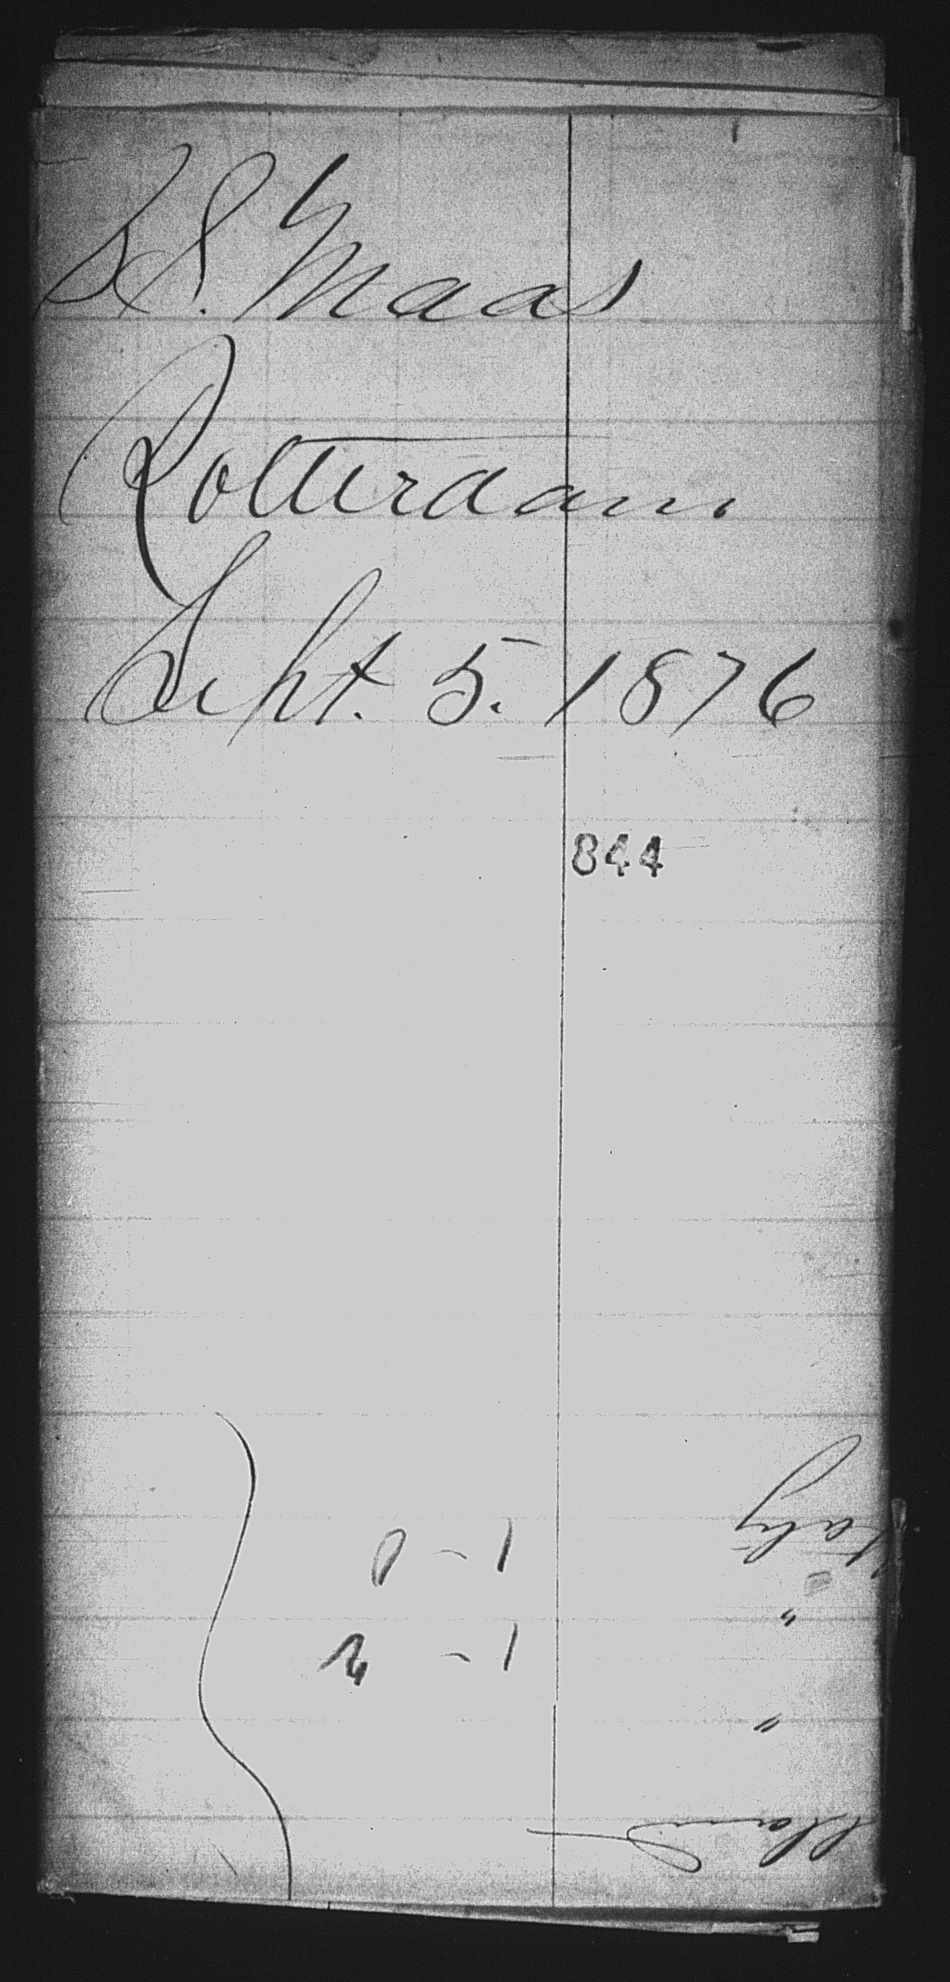 SS. Maas
Rotterdam.
Sept. 5. 1876
844
Italy
"
"